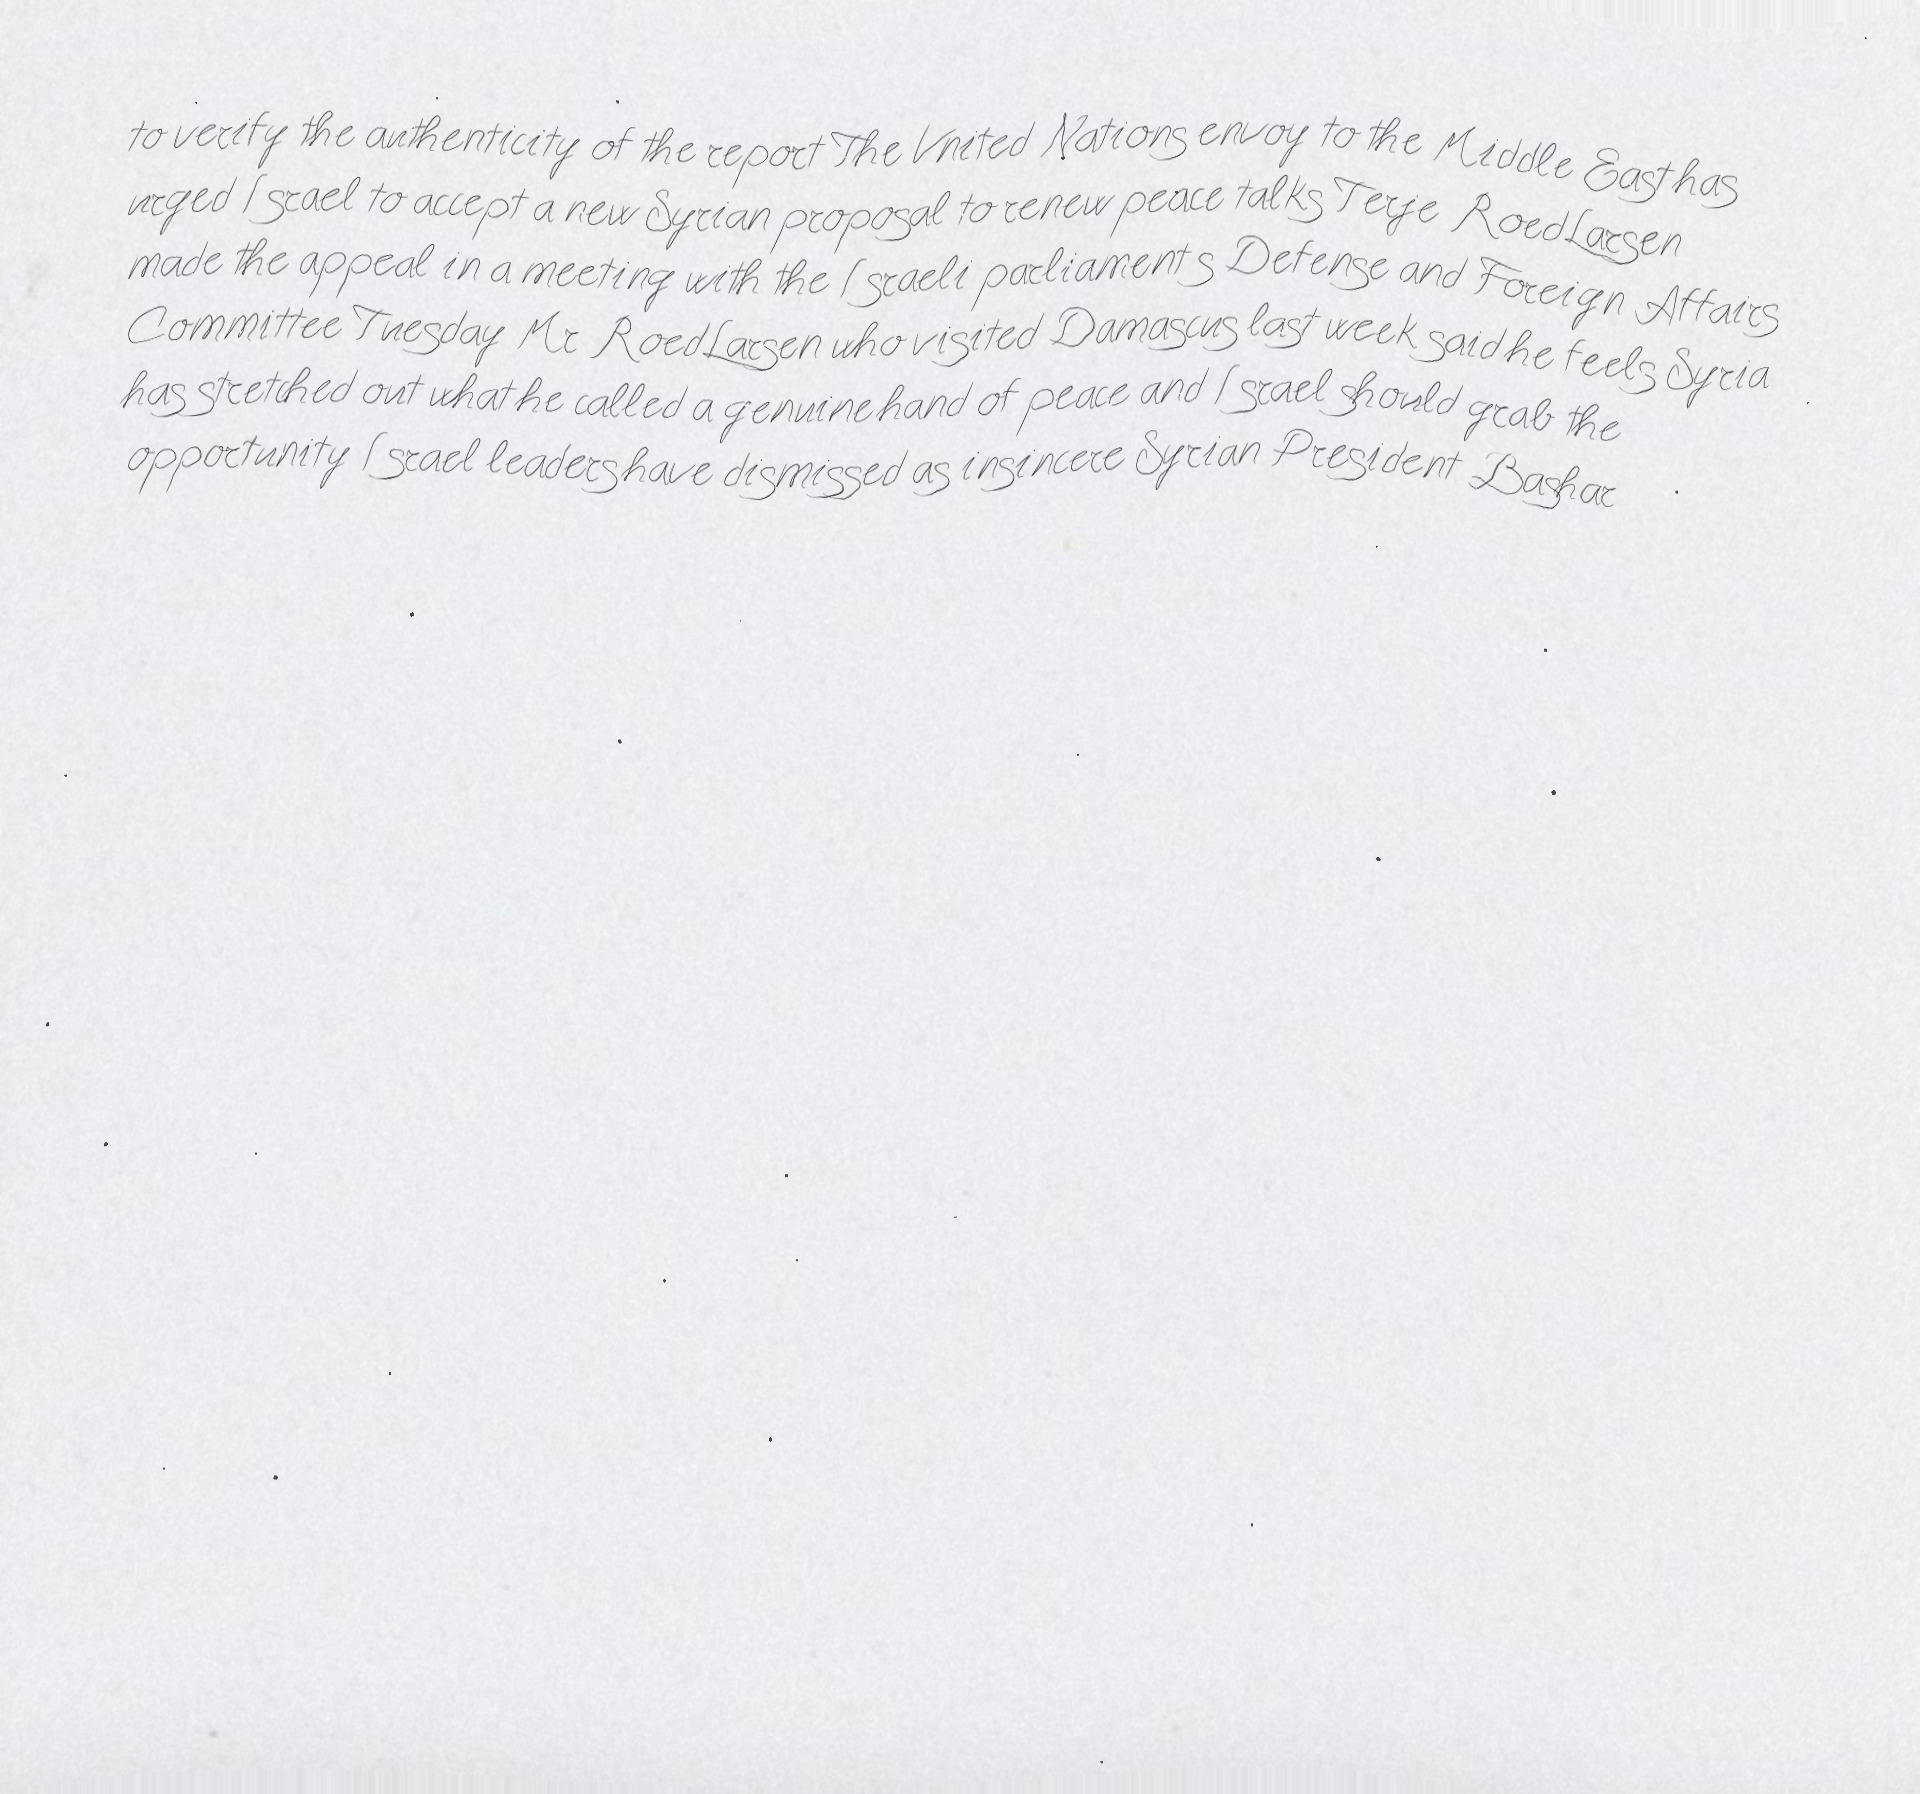 to verify the authenticity of the report The United Nations envoy to the Middle East has
urged Israel to accept a new Syrian proposal to renew peace talks Terje RoedLarsen
made the appeal in a meeting with the Israeli parliaments Defense and Foreign Affairs
Committee Tuesday Mr RoedLarsen who visited Damascus last week said he feels Syria
has stretched out what he called a genuine hand of peace and Israel should grab the
opportunity Israel leaders have dismissed as insincere Syrian President Bashar